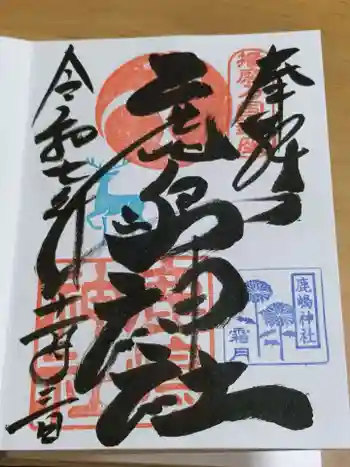 奉拝
鹿島神社
令和七年十一月三日
鹿嶋神社
霜月